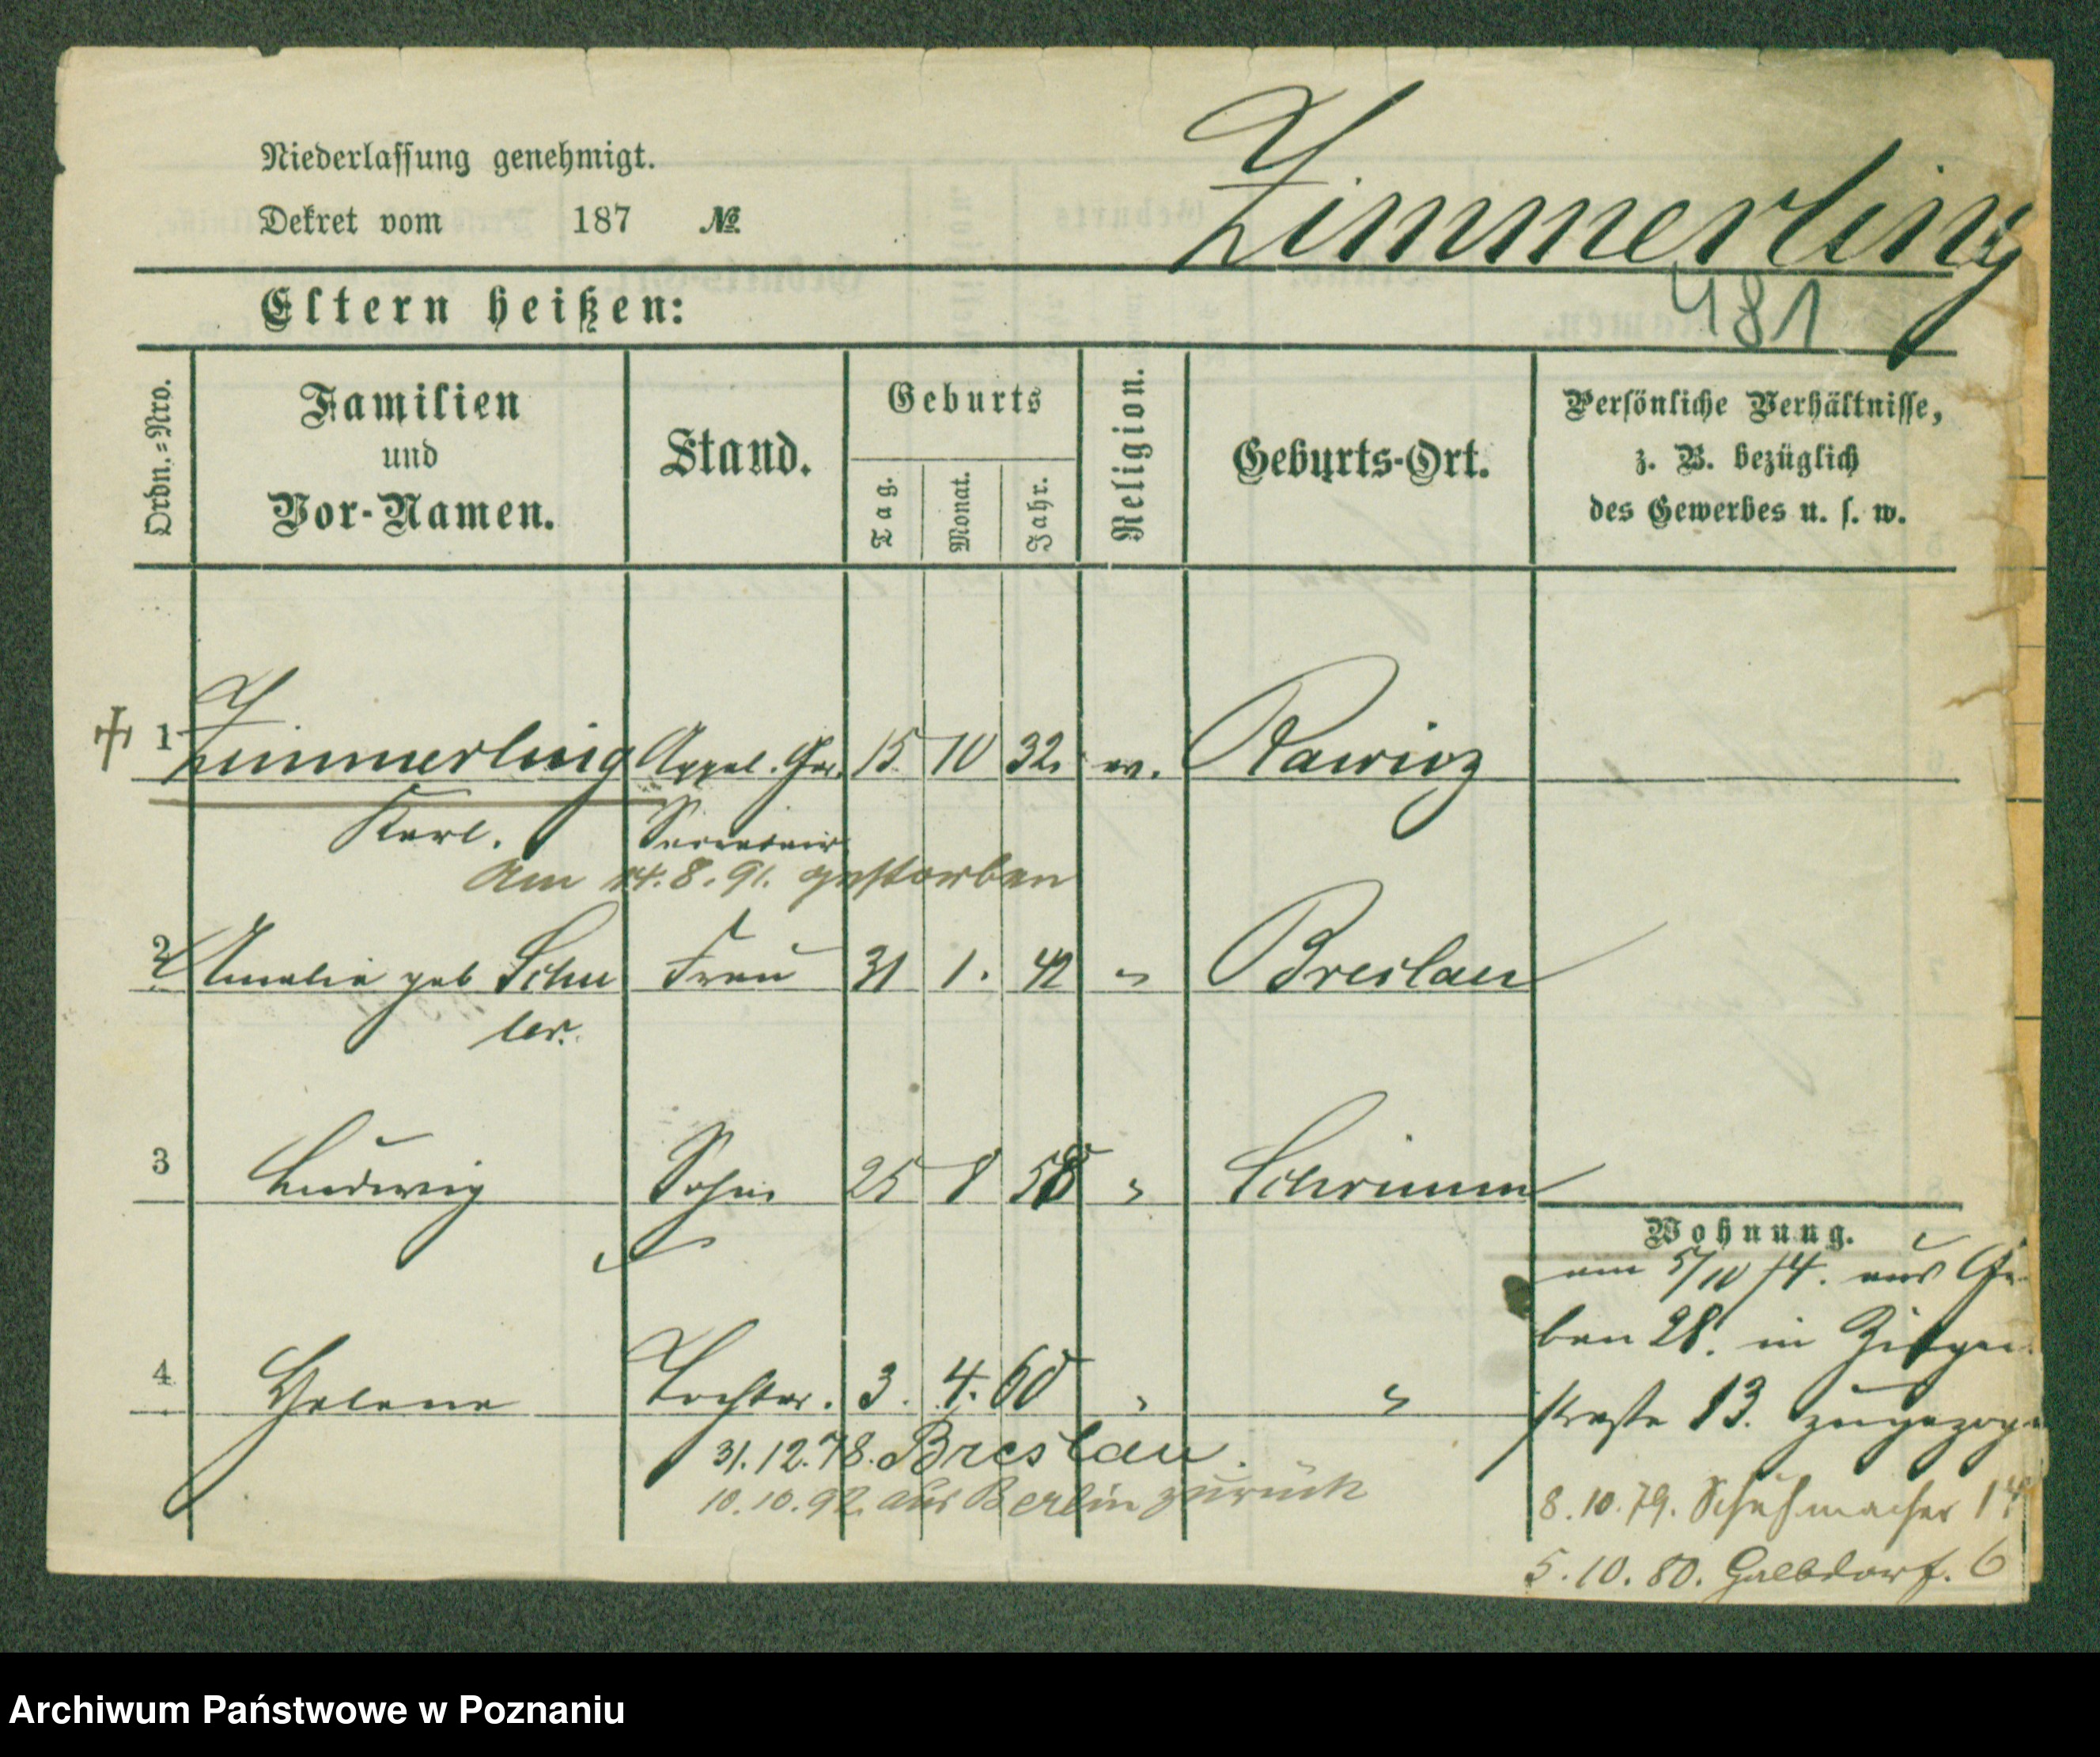 Niederlassung genehmigt.
Dekret vom 187 №
Zimmerling
481
Eltern heißen:
Ordn.=Nro.
Familien
und
Vor-Namen.
Stand.
Geburts
Tag.
Monat.
Jahr.
Religion.
Geburts-Ort.
Persönliche Verhältnisse,
z. B. bezüglich
des Gewerbes u. s. w.
1 Zimmerling Appel. Ger. 15 10 32. ev. Rawicz
Karl.
Am 14.8.91. gestorben
2 Amalie geb Schu Frau 31 1. 42 " Breslau
ler.
3 Ludwig Sohn 25 8 58 " Schrimm
4 Helene Tochter. 3. 4. 60 " "
31.12.78. Breslau.
10.10.92. aus Berlin zurück
Wohnung.
am 5/10 74. aus
ben 28. in
straße 13.
8.10.79. Schuhmacher 14
5.10.80. Halbdorf. 6
Archiwum Państwowe w Poznaniu